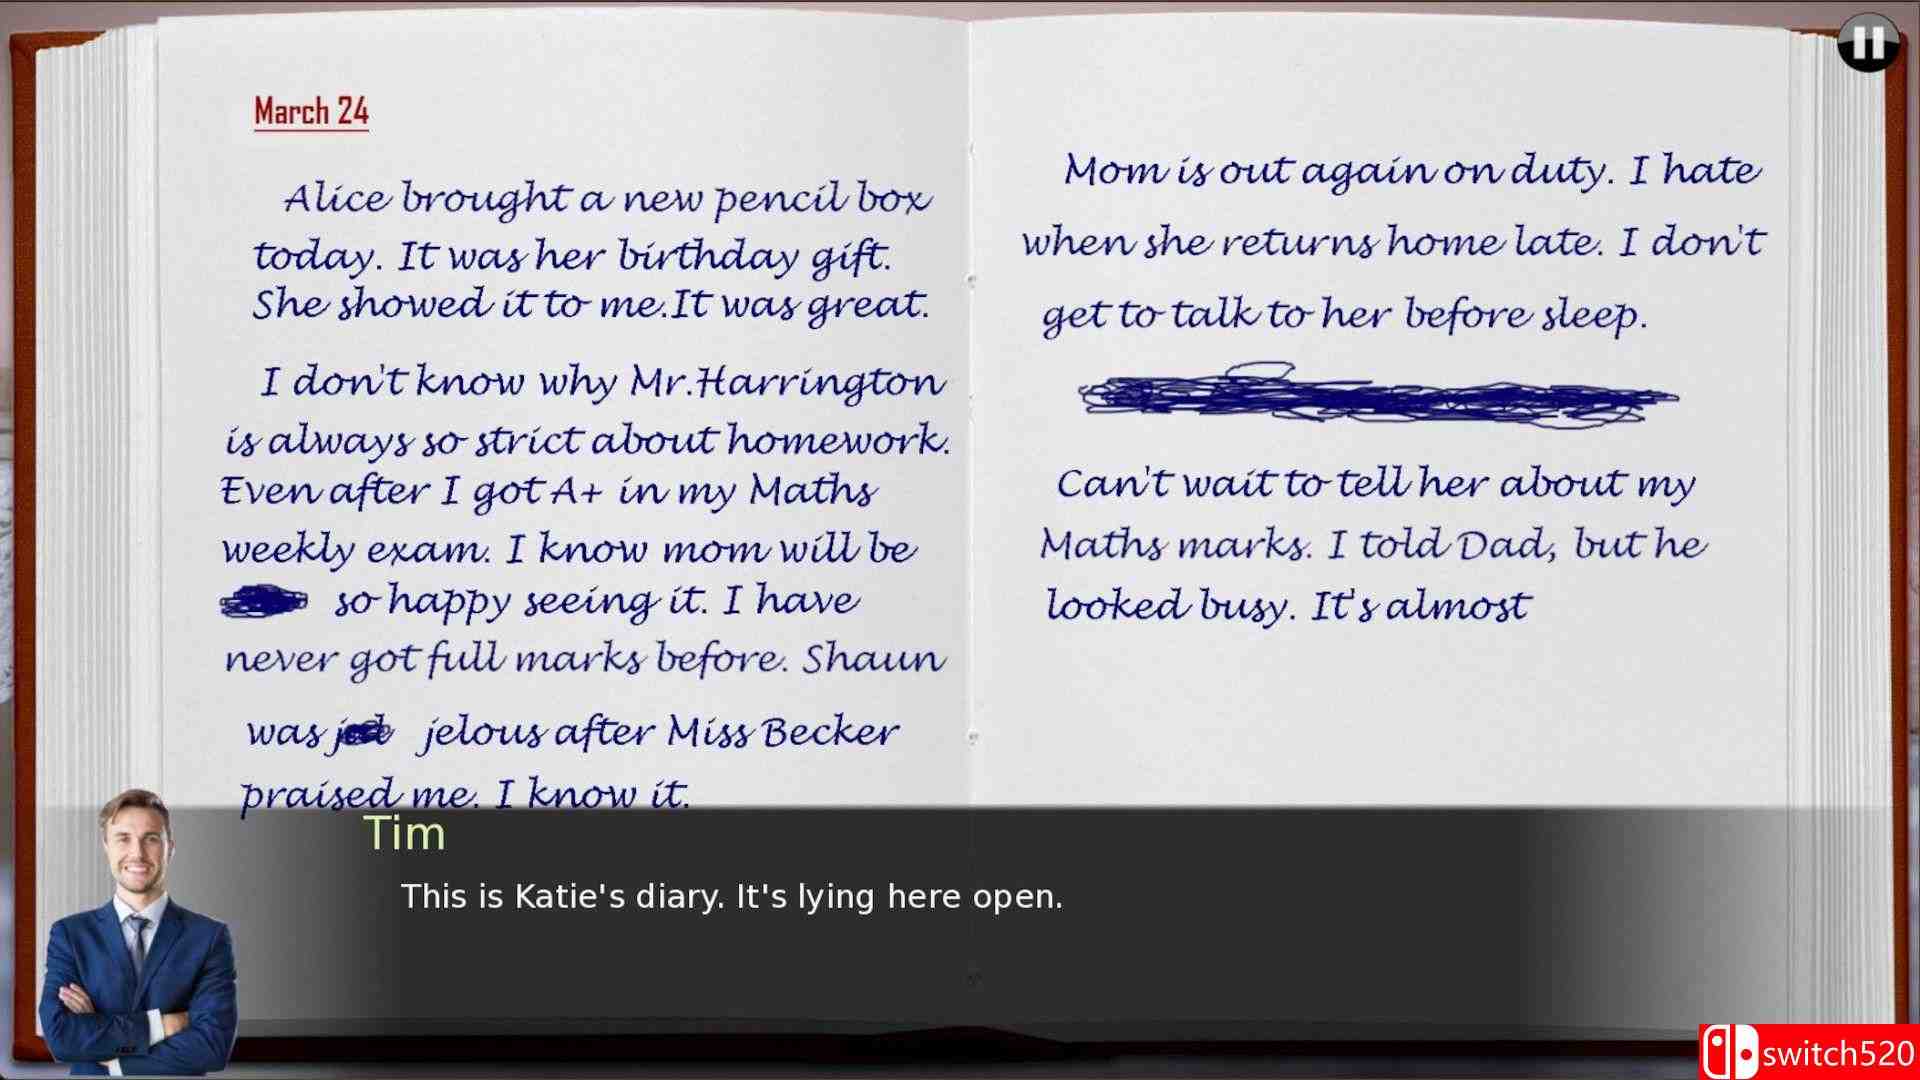 March 24
Alice brought a new pencil box
today. It was her birthday gift.
She showed it to me.It was great.
I don't know why Mr.Harrington
is always so strict about homework.
Even after I got A+ in my Maths
weekly exam. I know mom will be
so happy seeing it. I have
never got full marks before. Shaun
was jelous after Miss Becker
praised me. I know it.
Mom is out again on duty. I hate
when she returns home late. I don't
get to talk to her before sleep.
Can't wait to tell her about my
Maths marks. I told Dad, but he
looked busy. It's almost
Tim
This is Katie's diary. It's lying here open.
switch520